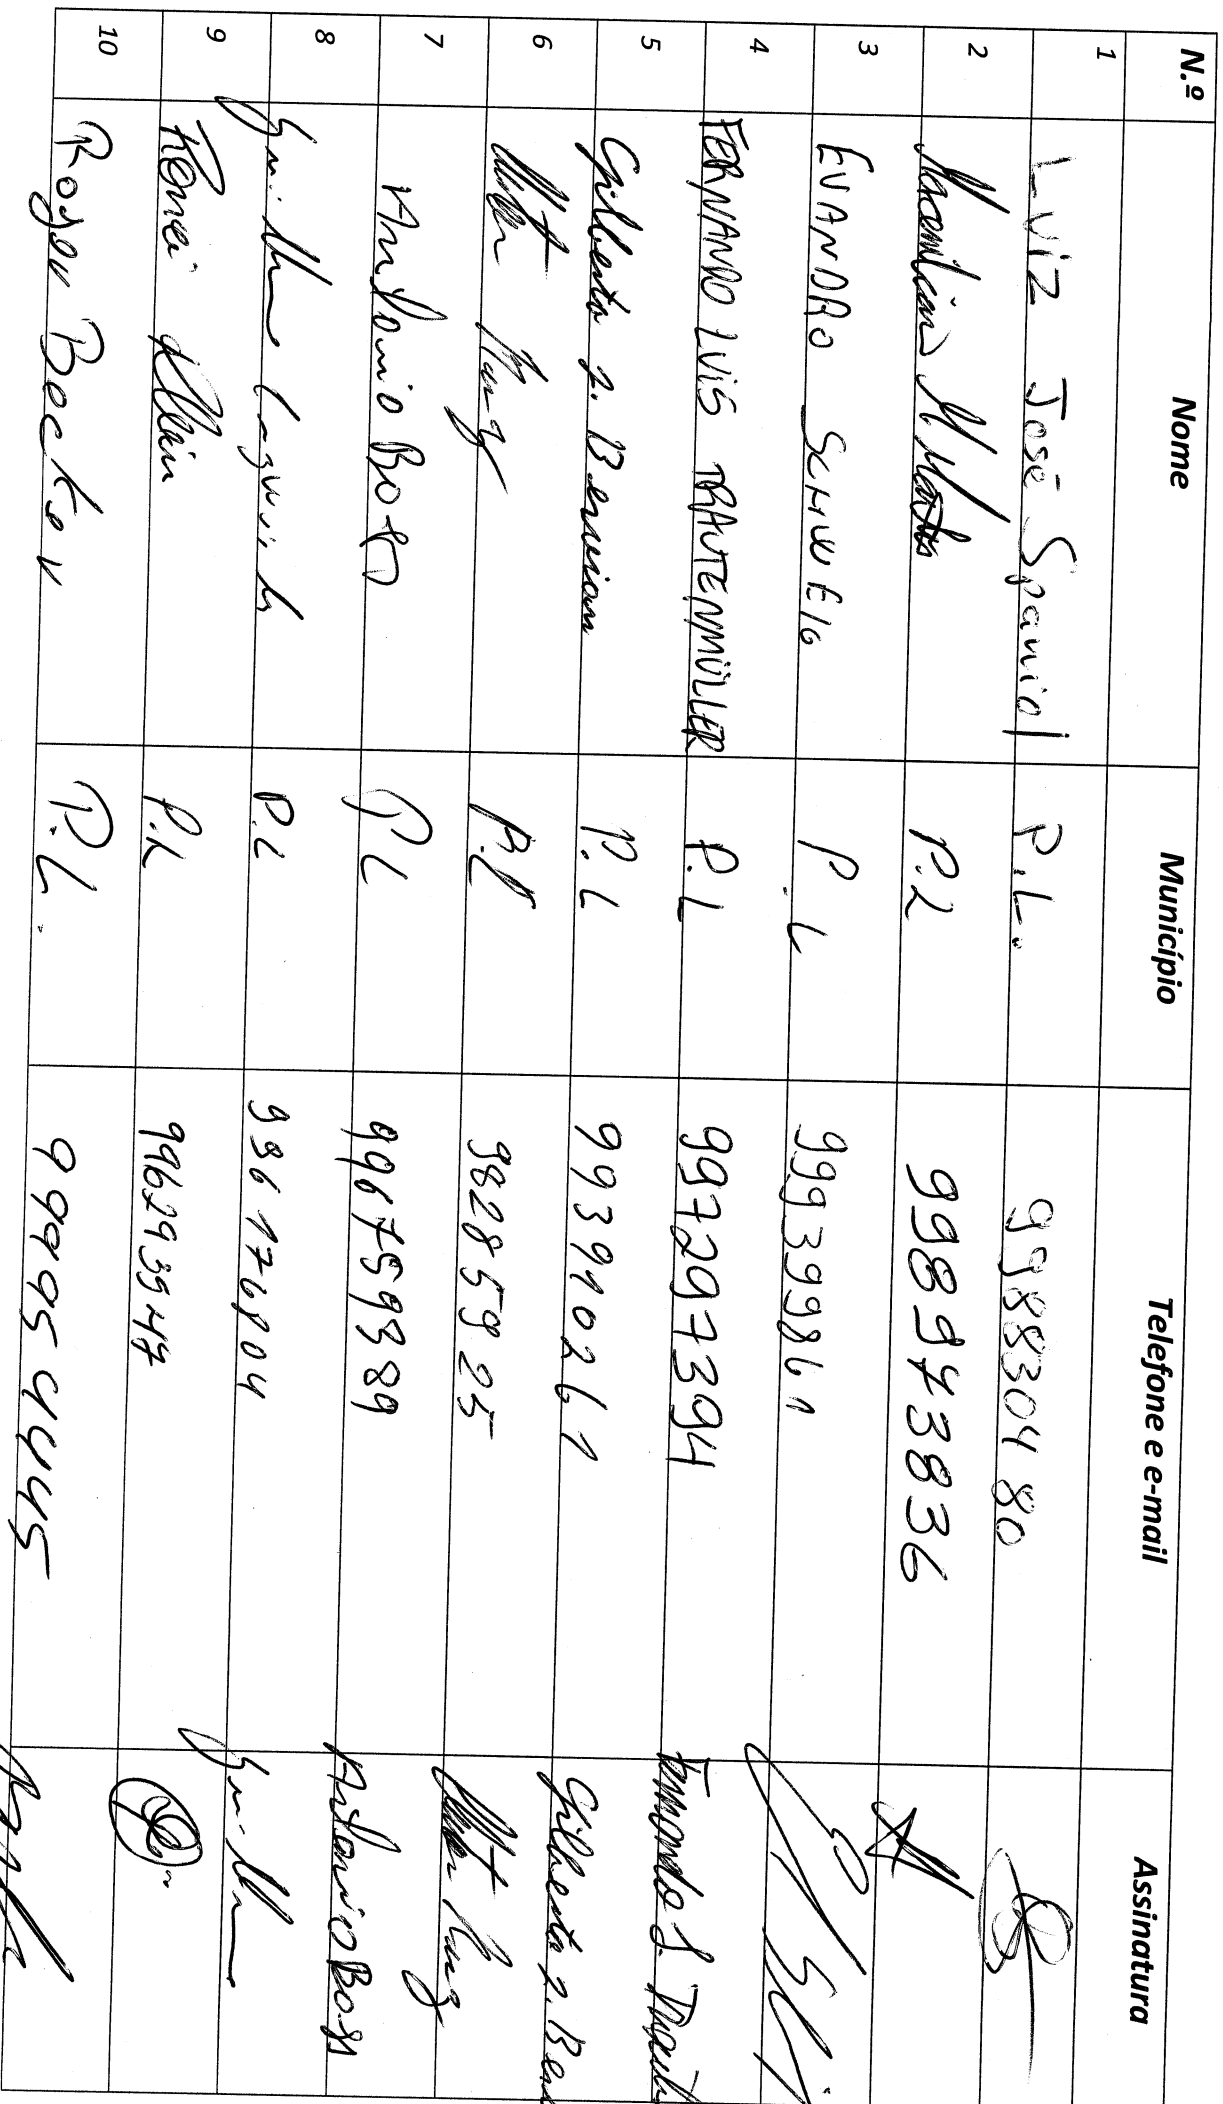 N.º Nome Município Telefone e e-mail Assinatura
1 Luiz José Spaniol P.L. 998830480
2 P.L 998943836
3 EVANDRO SCHWEIG P.L 999399861
4 FERNANDO LUIS TRAUTENMÜLLER P.L 997297394 Fernando L. Traut
5 Gilberto J. Bervian P.L 993910261 Gilberto J. Ber
6 P.L 98285925
7 Antonio Boss P L 996759389 Antonio Boss
8 P.L 996176804
9 P.L 996293947
10 Roger Becker P.L. 999954445